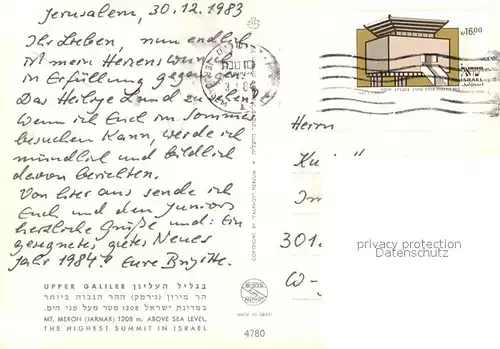 Jerusalem, 30.12.1983
Ihr Lieben, nun endlich
ist mein Herzenswunsch
in Erfüllung gegangen:
Das Heilige Land zu sehen.
Wenn ich Euch im Sommer
besuchen kann, werde ich
mündlich und bildlich
davon berichten.
Von hier aus sende ich
Euch und den Juniors
herzliche Grüße und: Ein
gesegnetes, gutes Neues
Jahr 1984! Eure Brigitte.
UPPER GALILEE בגליל העליון
הר מירון (ג'רמק) ההר הגבוה ביותר
במדינת ישראל 1208 מטר מעל פני הים.
MT. MERON (JARMAK) 1208 m. ABOVE SEA LEVEL,
THE HIGHEST SUMMIT IN ISRAEL
4780
MADE IN ISRAEL
COPYRIGHT BY "PALPHOT" HERZLIA
16.00
ISRAEL
Herrn
Im
301
W-
privacy protection
Datenschutz